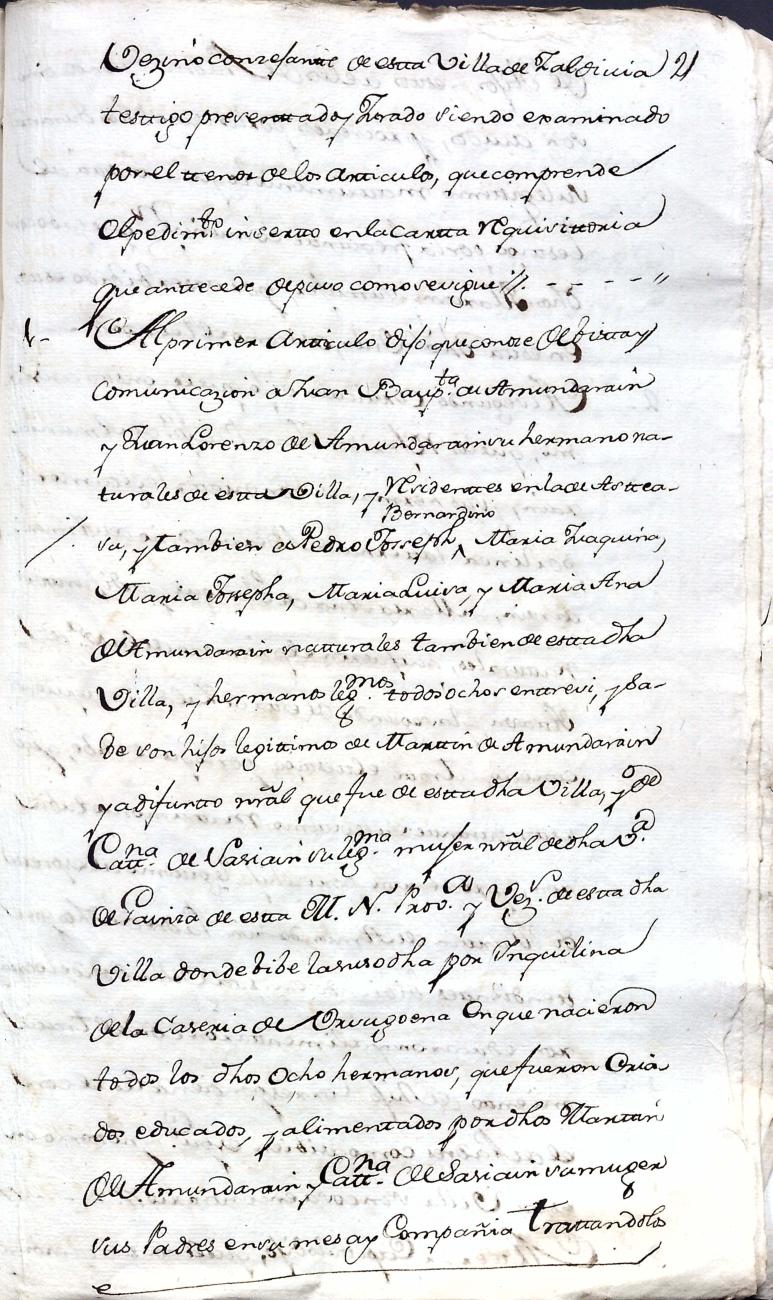 Vezino conzesante de estta Villa de Zaldivia 21
testtigo presenttado y Jurado siendo examinado
por el ttenor de los articulos, que comprende
el pedimto insertto en la Cartta requisittoria
que anttecede depuso como se sigue //. - - - - "
1- Al primer artticulo dijo que conoze de bistta y
Comunicazion a Juan Baupta. de Amundarain
y Juan Lorenzo de Amundarain su hermano na-
turales de estta Villa, y Residenttes en la de Asttea-
Bernardino
su, y tambien a Pedro Josseph, ^ Maria Juaquina,
Maria Jossepha, Maria Luisa, y Maria Ana
de Amundarain natturales tambien de estta dha
Villa, y hermanos legmos. todos ochos entre si, y sa-
be son hijos legittimos de Marttin de Amundarain
ya difuntto nrãl que fue de estta dha Villa, y de
Cattna. de Sasiain su legma. mujer nrãl de dha Va.
de Gainza de estta M. N. Prova. y Vez. de estta dha
Villa donde bibe la susodha por Inquilina
de la Caseria de Orsugoena en que nacieron
todos los dhos ocho hermanos, que fueron Cria-
dos educados, y alimentados por dhos Marttin
de Amundarain y Cattna. de Sasiain su muger
sus Padres en su mesa y Compañia trattandolos